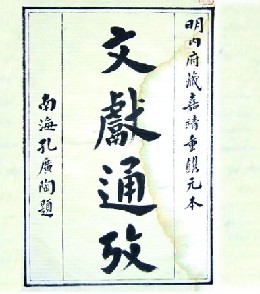 明內府藏嘉靖重鋟元本
文獻通攷
南海孔廣陶題